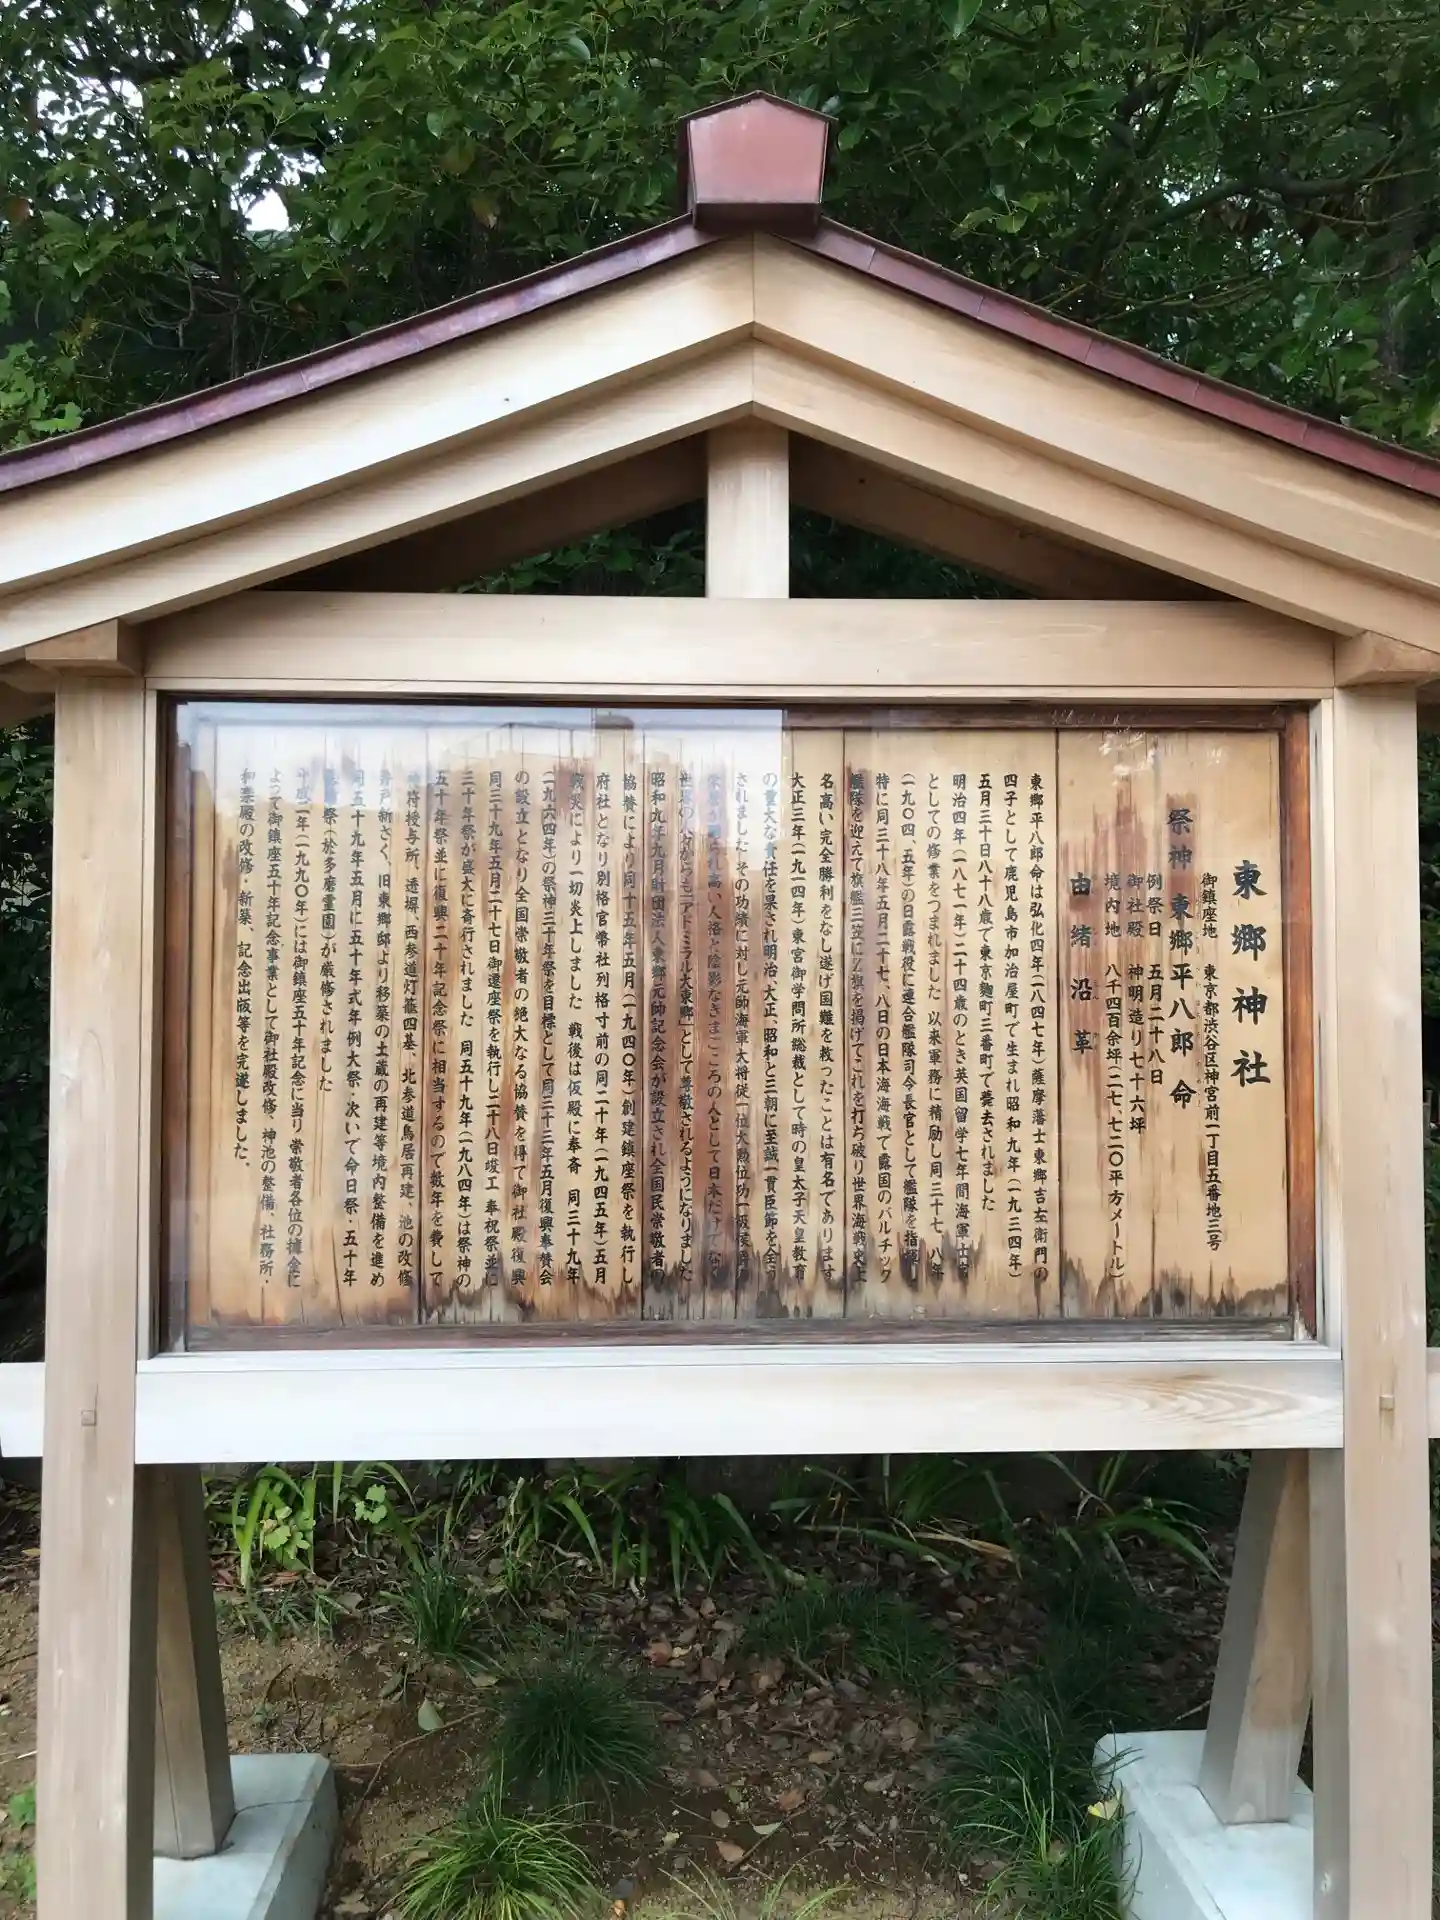 東郷神社
御鎮座地 東京都渋谷区神宮前一丁目五番地三号
祭神 東郷平八郎命
例祭日 五月二十八日
御社殿 神明造り七十六坪
境内地 八千四百余坪(二七、七二〇平方メートル)
由緒沿革
東郷平八郎命は弘化四年(一八四七年)薩摩藩士東郷吉左衛門の
四子として鹿児島市加治屋町で生まれ昭和九年(一九三四年)
五月三十日八十八歳で東京麹町三番町で薨去されました
明治四年(一八七一年)二十四歳のとき英国留学七年間海軍士官
としての修業をつまれました 以来軍務に精励し同三十七、八年
(一九〇四、五年)の日露戦役に連合艦隊司令長官として艦隊を指揮し
特に同三十八年五月二十七、八日の日本海海戦で露国のバルチック
艦隊を迎えて旗艦三笠にZ旗を掲げてこれを打ち破り世界海戦史上
名高い完全勝利をなし遂げ国難を救ったことは有名であります
大正三年(一九一四年)東宮御学問所総裁として時の皇太子天皇教育
の重大な責任を果され明治、大正、昭和と三朝に至誠一貫臣節を全う
されました その功績に対し元帥海軍大将従一位大勲位功一級侯爵の
栄誉が賜られ高い人格と陰影なきまごころの人として日本だけでなく
世界の人々からも「アドミラル大東郷」として尊敬されるようになりました
昭和九年九月財団法人東郷元帥記念会が設立され全国民崇敬者の
協賛により同十五年五月(一九四〇年)創建鎮座祭を執行し
府社となり別格官幣社列格寸前の同二十年(一九四五年)五月
戦災により一切炎上しました 戦後は仮殿に奉斎 同三十九年
(一九六四年)の祭神三十年祭を目標として同三十三年五月復興奉賛会
の設立となり全国崇敬者の絶大なる協賛を得て御社殿復興
同三十九年五月二十七日御遷座祭を執行し二十八日竣工奉祝祭並に
三十年祭が盛大に斎行されました 同五十九年(一九八四年)は祭神の
五十年祭並に復興二十年記念祭に相当するので数年を費して
神符授与所、透塀、西参道灯籠四基、北参道鳥居再建、池の改修
井戸新さく、旧東郷邸より移築の土蔵の再建等境内整備を進め
同五十九年五月に五十年式年例大祭・次いで命日祭・五十年
墓前祭(於多磨霊園)が厳修されました
平成二年(一九九〇年)には御鎮座五十年記念に当り崇敬者各位の據金に
よって御鎮座五十年記念事業として御社殿改修、神池の整備、社務所・
和楽殿の改修・新築、記念出版等を完遂しました。